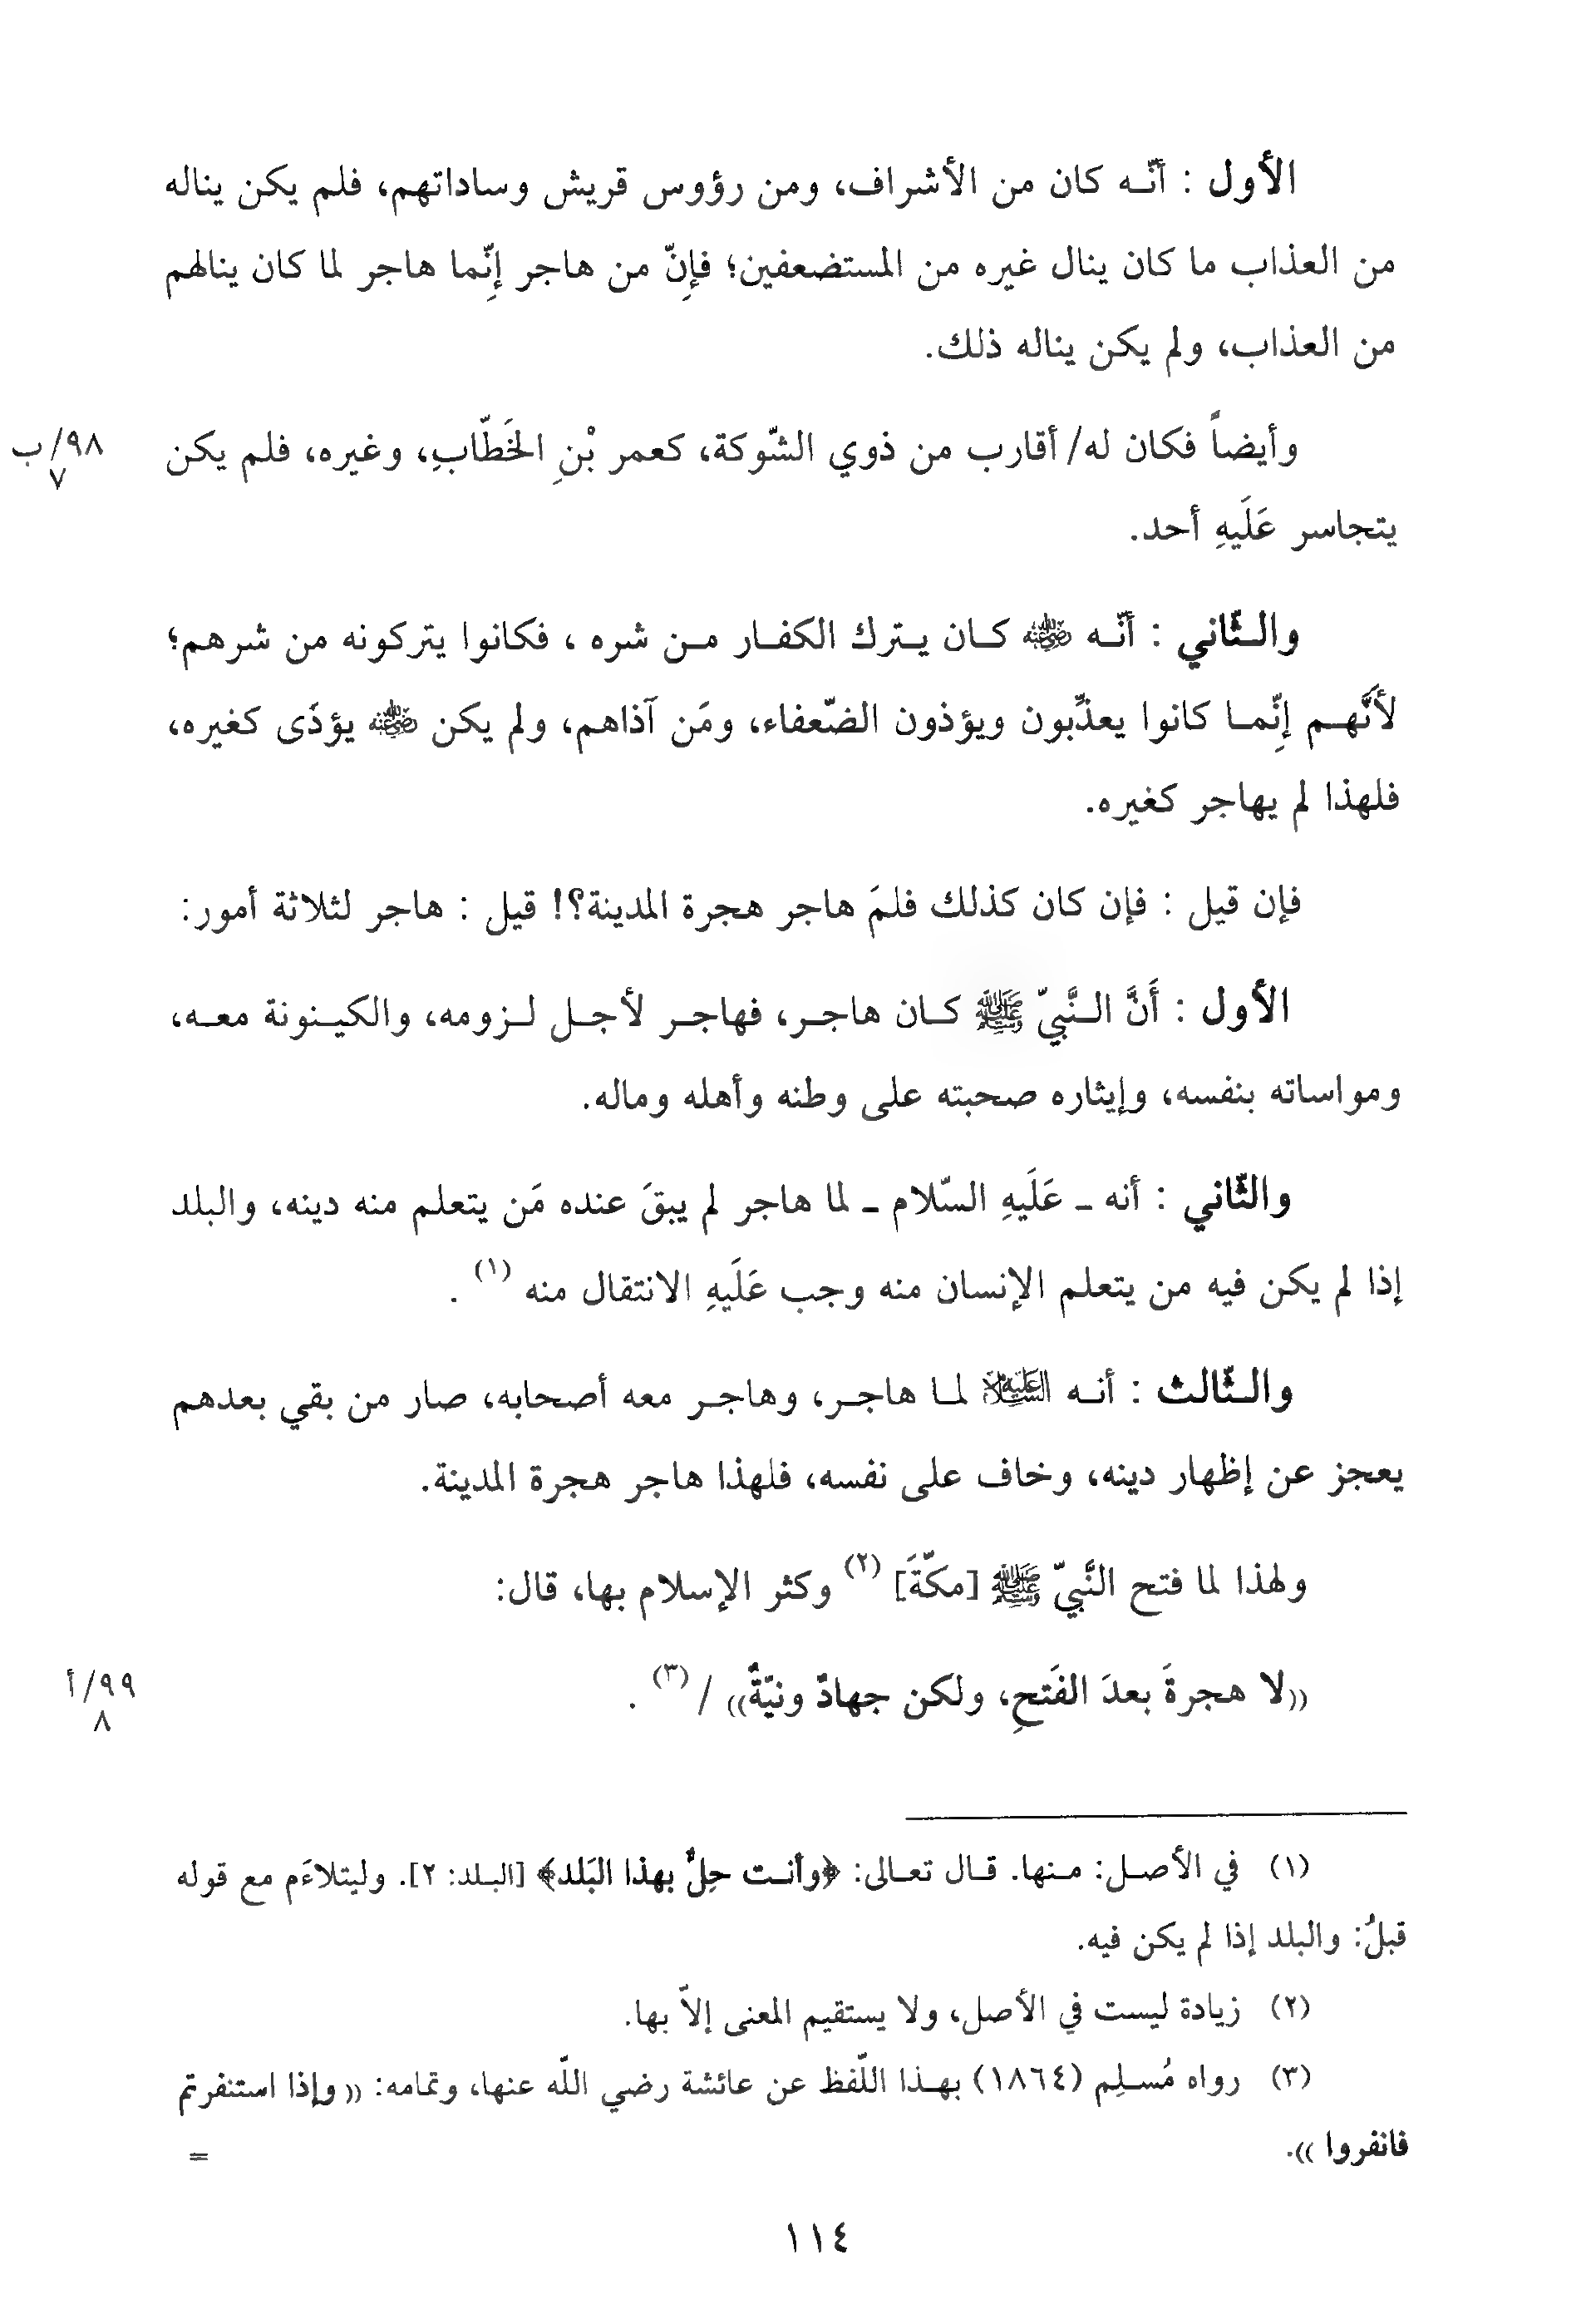 الأول : أنّـه كان من الأشراف، ومن رؤوس قريش وساداتهم، فلم يكن يناله
من العذاب ما كان ينال غيره من المستضعفين؛ فإِنّ من هاجر إِنّما هاجر لما كان ينالهم
من العذاب، ولم يكن يناله ذلك.
وأيضاً فكان له/ أقارب من ذوي الشّوكة، كعمر بْنِ الخَطّابِ، وغيره، فلم يكن
٩٨/ب
٧
يتجاسر عَلَيهِ أحد.
والـثّاني : أنّـه ﵁ كـان يـترك الكفـار مـن شره ، فكانوا يتركونه من شرهم؛
لأنَّهـم إِنّمـا كانوا يعذِّبون ويؤذون الضّعفاء، ومَن آذاهم، ولم يكن ﵁ يؤذَى كغيره،
فلهذا لم يهاجر كغيره.
فإن قيل : فإن كان كذلك فلمَ هاجر هجرة المدينة؟! قيل : هاجر لثلاثة أمور:
الأول : أَنَّ الـنَّبيّ ﷺ كـان هاجـر، فهاجـر لأجـل لـزومه، والكيـنونة معـه،
ومواساته بنفسه، وإيثاره صحبته على وطنه وأهله وماله.
والثّاني : أنه ـ عَلَيهِ السّلام ـ لما هاجر لم يبقَ عنده مَن يتعلم منه دينه، والبلد
إذا لم يكن فيه من يتعلم الإنسان منه وجب عَلَيهِ الانتقال منه (١) .
والـثّالث : أنـه ﵇ لمـا هاجـر، وهاجـر معه أصحابه، صار من بقي بعدهم
يعجز عن إظهار دينه، وخاف على نفسه، فلهذا هاجر هجرة المدينة.
ولهذا لما فتح النَّبيّ ﷺ [مكّةَ] (٢) وكثر الإسلام بها، قال:
((لا هجرةَ بعدَ الفَتحِ، ولكن جهادٌ ونيّةٌ)) / (٣) .
٩٩/أ
٨
(١) في الأصـل: مـنها. قـال تعـالى: ﴿وأنـت حِلٌّ بهذا البَلد﴾ [البـلد: ٢]. وليتلاءَم مع قوله
قبلُ: والبلد إذا لم يكن فيه.
(٢) زيادة ليست في الأصل، ولا يستقيم المعنى إلاّ بها.
(٣) رواه مُسـلِم (١٨٦٤) بهـذا اللّفظ عن عائشة رضي اللّه عنها، وتمامه: (( وإذا استنفرتم
فانفروا )).
=
١١٤